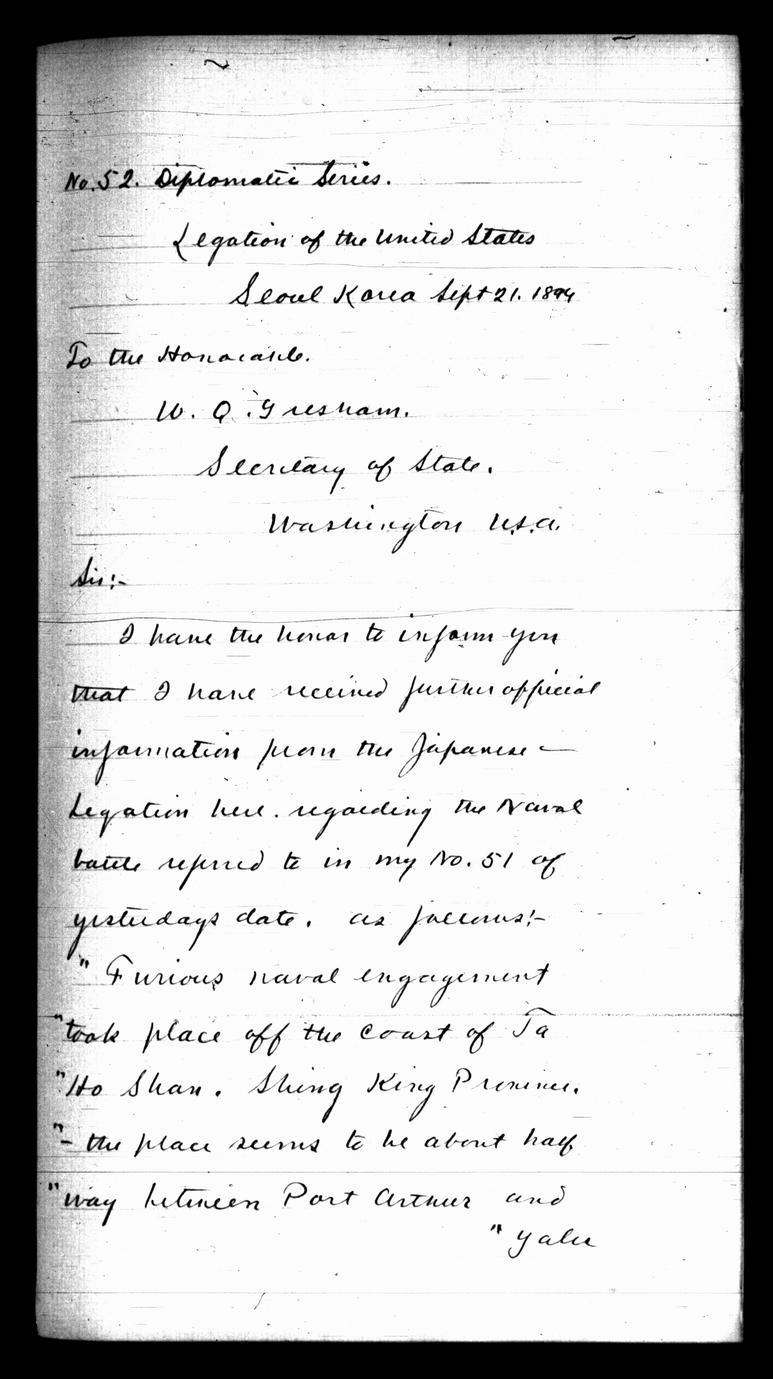 No. 52. Diplomatic Series.
Legation of the United States
Seoul Korea Sept 21. 1894
To the Honorable.
W. Q. Gresham.
Secretary of State.
Washington U.S.A.
Sir:-
I have the honor to inform you
that I have received further official
information from the Japanese —
Legation here. regarding the Naval
battle referred to in my No. 51 of
yesterdays date. as follows:-
" Furious naval engagement
"took place off the coast of Ta
"Ho Shan. Shing King Province.
"- the place seems to be about half
"way between Port Arthur and
" Yalu